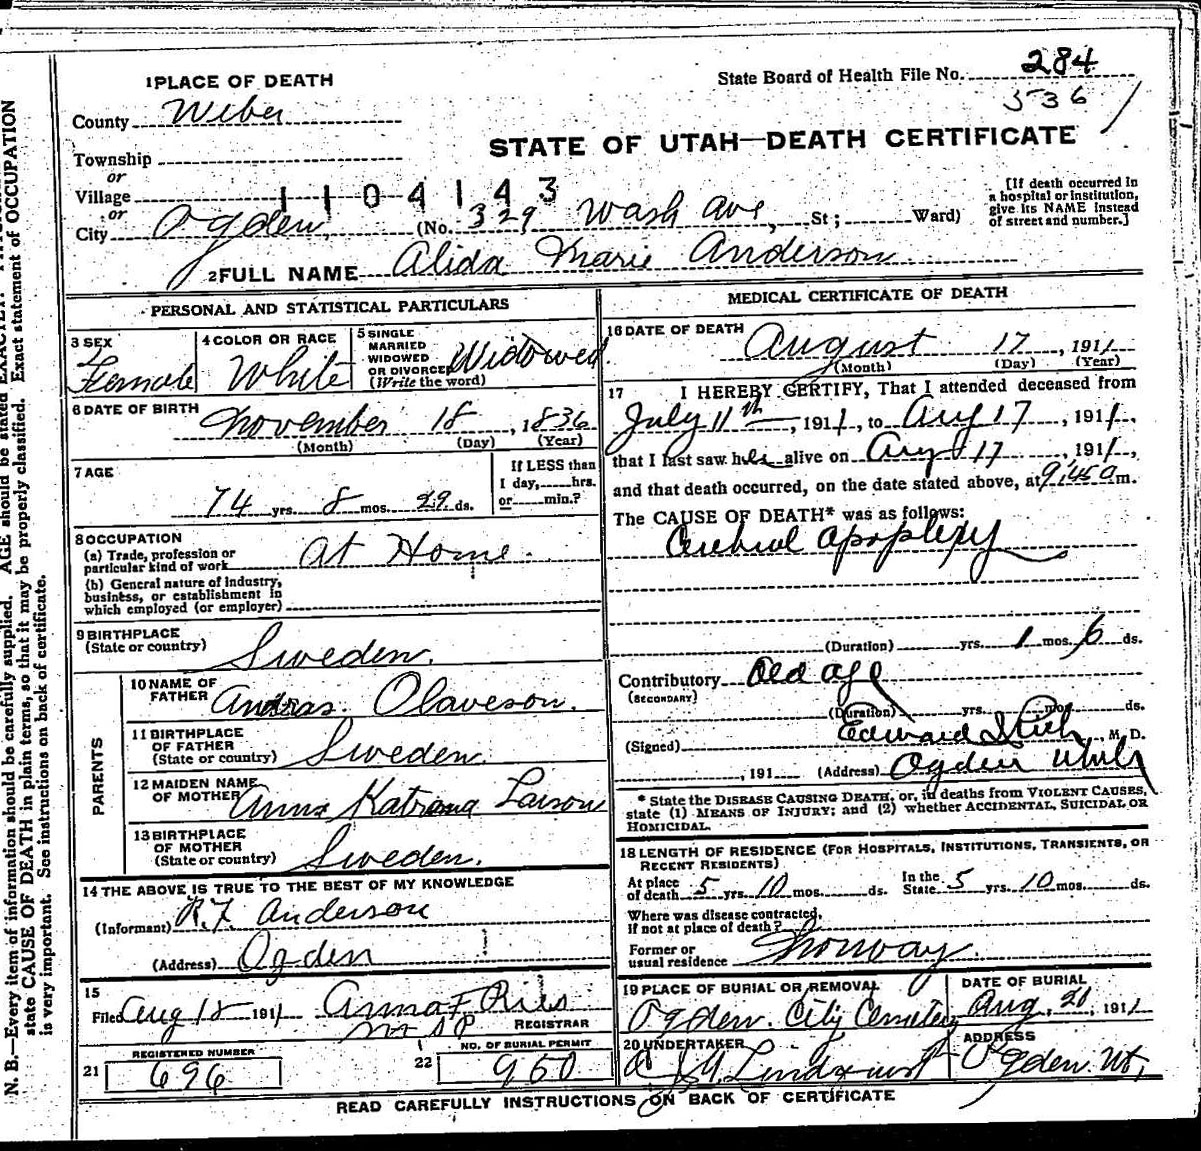 1 PLACE OF DEATH
State Board of Health File No. 284
536
County Weber
STATE OF UTAH—DEATH CERTIFICATE
Township
or
Village
1104143
or
City Ogden (No. 329 Wash Ave, St; Ward)
[If death occurred in
a hospital or institution,
give its NAME instead
of street and number.]
2 FULL NAME Alida Marie Anderson
PERSONAL AND STATISTICAL PARTICULARS
3 SEX
Female
4 COLOR OR RACE
White
5 SINGLE
MARRIED
WIDOWED
OR DIVORCED
(Write the word)
Widowed
6 DATE OF BIRTH
November 18, 1836
(Month) (Day) (Year)
7 AGE
74 yrs. 8 mos. 29 ds.
If LESS than
1 day, hrs.
or min.?
8 OCCUPATION
(a) Trade, profession or
particular kind of work
At Home.
(b) General nature of industry,
business, or establishment in
which employed (or employer)
9 BIRTHPLACE
(State or country)
Sweden.
PARENTS
10 NAME OF
FATHER
Andras. Olaveson.
11 BIRTHPLACE
OF FATHER
(State or country)
Sweden.
12 MAIDEN NAME
OF MOTHER
Anna Katrana Larson
13 BIRTHPLACE
OF MOTHER
(State or country)
Sweden.
14 THE ABOVE IS TRUE TO THE BEST OF MY KNOWLEDGE
(Informant) R.F. Anderson
(Address) Ogden
15
Filed Aug 18 1911 Anna F Ries
REGISTRAR
REGISTERED NUMBER
21 696
NO. OF BURIAL PERMIT
22 960
MEDICAL CERTIFICATE OF DEATH
16 DATE OF DEATH
August 17, 1911
(Month) (Day) (Year)
17 I HEREBY CERTIFY, That I attended deceased from
July 11th, 1911, to Aug 17, 1911,
that I last saw her alive on Aug 17, 1911,
and that death occurred, on the date stated above, at 9:45 a m.
The CAUSE OF DEATH* was as follows:
Cerebral apoplexy
(Duration) yrs. 1 mos. 6 ds.
Contributory Old age
(SECONDARY)
(Duration) yrs. mos. ds.
(Signed) Edward M. D.
, 191 (Address) Ogden Utah
* State the DISEASE CAUSING DEATH, or, in deaths from VIOLENT CAUSES,
state (1) MEANS OF INJURY; and (2) whether ACCIDENTAL, SUICIDAL OR
HOMICIDAL.
18 LENGTH OF RESIDENCE (FOR HOSPITALS, INSTITUTIONS, TRANSIENTS, OR
RECENT RESIDENTS)
At place
of death 5 yrs. 10 mos. ds.
In the
State 5 yrs. 10 mos. ds.
Where was disease contracted,
if not at place of death?
Former or
usual residence Norway.
19 PLACE OF BURIAL OR REMOVAL
Ogden City Cemetery
DATE OF BURIAL
Aug. 20, 1911
20 UNDERTAKER
Lindquist
ADDRESS
Ogden Ut,
READ CAREFULLY INSTRUCTIONS ON BACK OF CERTIFICATE
N. B.—Every item of information should be carefully supplied. AGE should be stated EXACTLY.
state CAUSE OF DEATH in plain terms, so that it may be properly classified. Exact statement of OCCUPATION
is very important. See instructions on back of certificate.